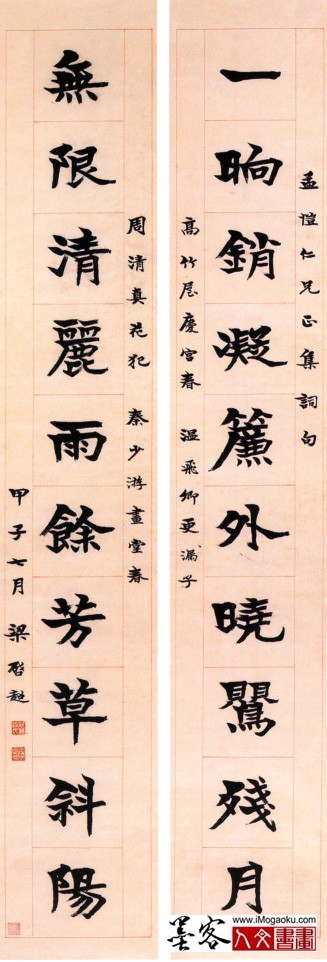 孟愷仁兄正集詞句
一晌銷凝簾外曉鸎殘月
高竹屋慶宮春 溫飛卿更漏子
周清真花犯 秦少游畫堂春
無限清麗雨餘芳草斜陽
甲子七月 梁啓超
www.iMogaoku.com
墨客
人文書畫